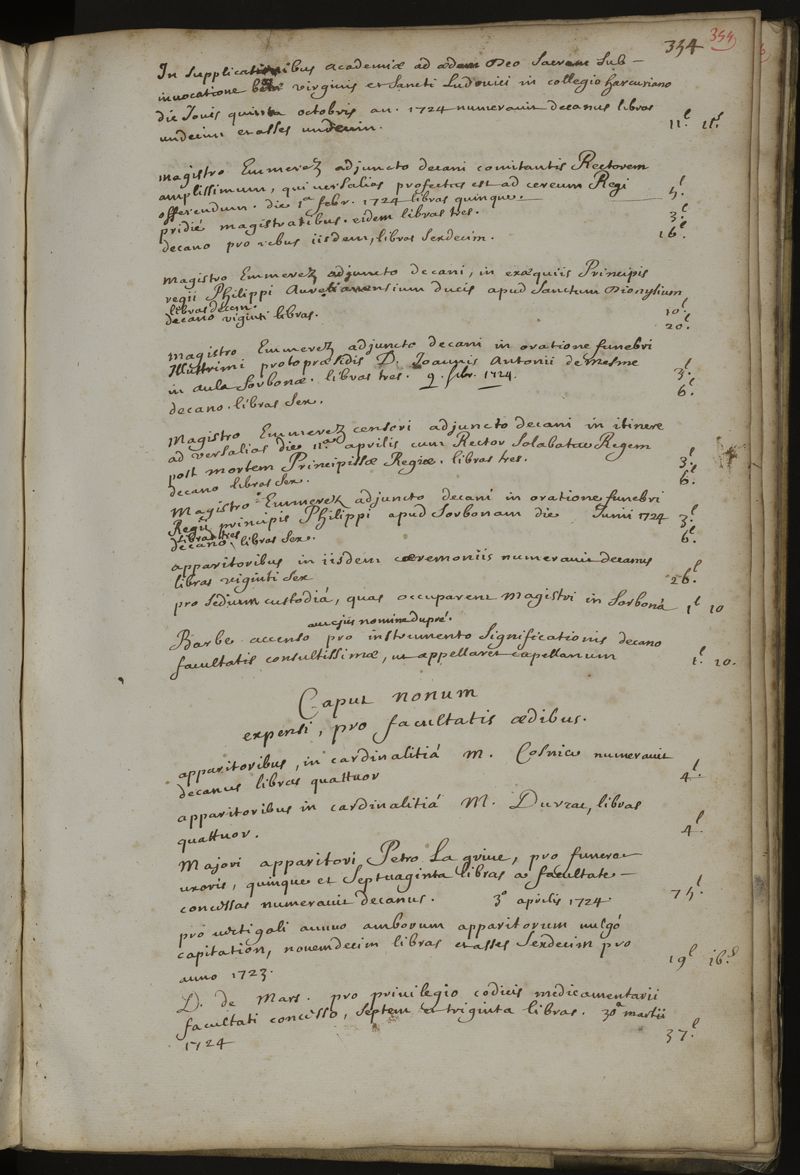 354 354
In supplicationibus academiæ ad ædem Deo sacram sub-
invocatione beatæ virginis et sancti Ludovici in collegio harcuriano
die Jovis quinta octobris an. 1724 numeravit decanus libras
undecim et asses undecim. 11.l 11.s
magistro Emmerez adjuncto decani comitantis Rectorem
amplissimum, qui versalias profectus est ad cereum Regi
offerendum. die 1a febr. 1724 libras quinque. 5.l
pridié magistratibus. eidem libras tres. 3.l
decano pro rebus iisdem, libras sexdecim. 16.l
magistro Emmerez adjuncto decani, in exæquiis Principis
regii Philippi Aurelianensium ducis apud sanctum Dionysium
libras decem. 10.l
decano viginti libras. 20.l
magistro Emmerez adjuncto decani in oratione funebri
Illustrimi protopræsidis D. Joannis Antonii de mesme
in aula sorbonæ. libras tres. 9. febr. 1724. 3.l
decano. libras sex. 6.l
Magistro Emmerez censori adjuncto decani in itinere
ad versalias die 11a aprilis cum Rector Regem
post mortem Principissæ Regiæ. libras tres. 3.l
decano libras sex. 6.l
Magistro Emmerez adjuncto decani in oratione funebri
Regii principis Philippi apud sorbonam die Junii 1724 3.l
libras tres
decano libras sex. 6.l
apparitoribus in iisdem cæremoniis numeravit decanus
libras viginti sex 26.l
pro sedium custodiá, quas occuparent magistri in sorboná 1l 10
nomine dupré.
Barbe accenso pro instrumento significationis decano
facultatis consultissimæ, ut appellaret capellanum 1.l 10.
Caput nonum
expensi, pro facultatis ædibus.
apparitoribus, in cardinalitiá M. Cosnier numeravit
decanus libras quattuor 4.l
apparitoribus in cardinalitiá M. Duvrac, libras
quattuor. 4.l
Majori apparitori Petro La grive, pro funere
uxoris, quinque et septuaginta libras a facultate-
concessas numeravit decanus. 3o aprilis 1724. 75.l
pro vectigali annuo amborum apparitorum vulgó
capitation, novemdecim libras et asses sexdecim pro
anno 1723. 19l 16.s
D. de Mars. pro privilegio codicis medicamentarii
facultati concesso, septem et triginta libras. 30a martii
1724 37.l